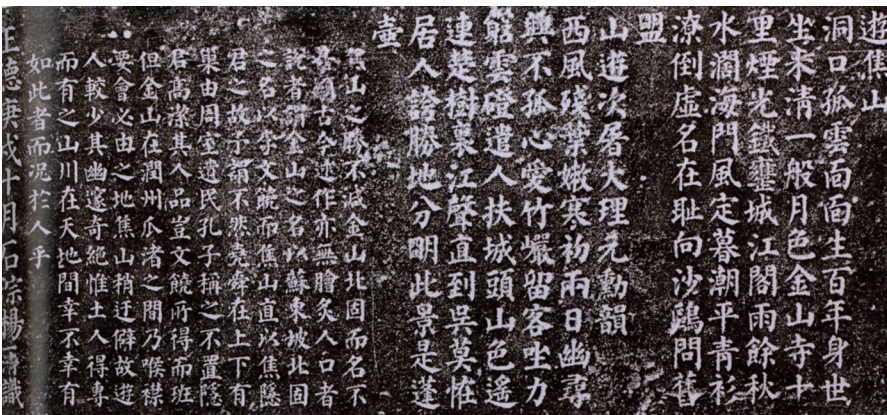 遊焦山
洞口孤雲面面生百年身世
坐來清一般月色金山寺十
里煙光鐵甕城江閣雨餘秋
水濶海門風定暮潮平青衫
潦倒虛名在耻向沙鷗問舊
盟
山遊次屠大理元勳韻
西風殘葉嫩寒初兩日幽尋
興不孤心愛竹巖留客坐力
窮雲磴遣人扶城頭山色遙
連楚樹裏江聲直到吳莫恠
居人誇勝地分明此景是蓬
壺
焦山之勝不減金山北固而名不
古今述作亦無膾炙人口者
說者謂金山之名以蘇東坡北固
之名以李文饒而焦山直以焦隱
君之故予謂不然堯舜在上下有
巢由周室遺民孔子稱之不置隱
君高潔其人品豈文饒所得而班
但金山在潤州瓜渚之間乃喉襟
要會必由之地焦山稍迂僻故遊
人較少其幽邃奇絕惟土人得專
而有之山川在天地間幸不幸有
如此者而況於人乎
正德庚戌十月石淙楊清識